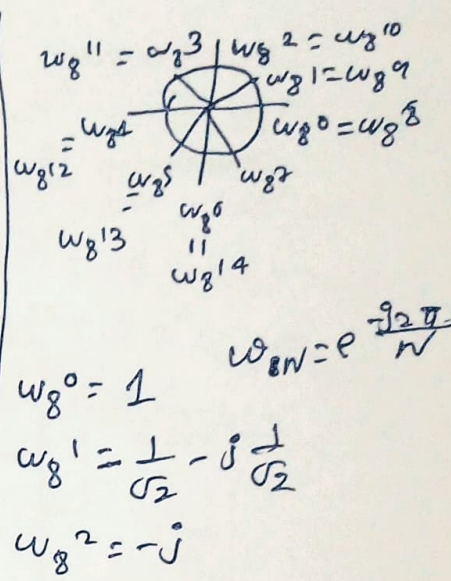 w₈¹¹ = w₈³ w₈² = w₈¹⁰
w₈¹ = w₈⁹
w₈⁴ w₈⁰ = w₈⁸
=
w₈¹² w₈⁵ w₈⁷
=
w₈¹³ w₈⁶
=
w₈¹⁴
w₈N = e^(-j2π/N)
w₈⁰ = 1
w₈¹ = 1/√2 - j 1/√2
w₈² = -j